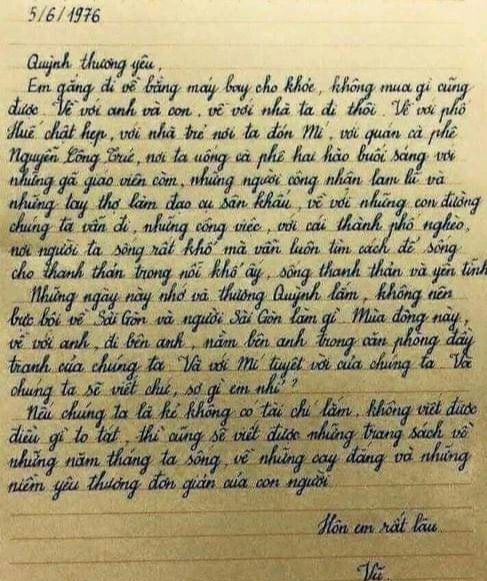 5/6/1976
Quỳnh thương yêu,
Em gắng đi về bằng máy bay cho khỏe, không mua gì cũng
được. Về với anh và con, về với nhà ta đi thôi. Về với phố
Huế chật hẹp, với nhà trẻ nơi ta đón Mí, với quán cà phê
Nguyễn Công Trứ, nơi ta uống cà phê hai hào buổi sáng với
những gã giáo viên còm, những người công nhân lam lũ và
những tay thợ làm đạo cụ sân khấu, về với những con đường
chúng ta vẫn đi, những công việc, với cái thành phố nghèo,
nơi người ta sống rất khổ mà vẫn luôn tìm cách để sống
cho thanh thản trong nỗi khổ ấy, sống thanh thản và yên tĩnh
Những ngày này nhớ và thương Quỳnh lắm, không nên
bực bội về Sài Gòn và người Sài Gòn làm gì. Mùa đông này,
về với anh, đi bên anh, nằm bên anh trong căn phòng đầy
tranh của chúng ta. Và với Mí tuyệt vời của chúng ta. Và
chúng ta sẽ viết chứ, sợ gì em nhỉ?
Nếu chúng ta là kẻ không có tài chí lắm, không viết được
điều gì to tát, thì cũng sẽ viết được những trang sách về
những năm tháng ta sống, về những cay đắng và những
niềm yêu thương đơn giản của con người.
Hôn em rất lâu
Vũ